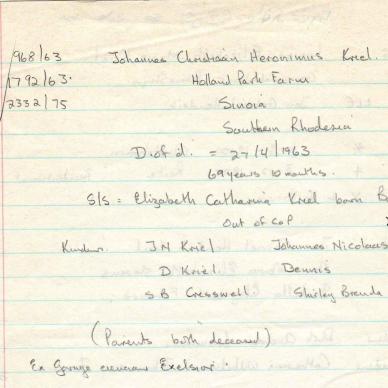 968/63 Johannes Christiaan Heronimus Kriel.
1792/63. Holland Park Farm
2332/75 Sinoia
Southern Rhodesia
D. of d. = 27/4/1963
69 years 10 months.
S/S = Elizabeth Catharina Kriel born
Out of CoP
Kinders. J N Kriel Johannes Nicolaas
D Kriel Dennis
S B Cresswell Shirley Brenda
(Parents both deceased)
Ex Garage Excelsior.